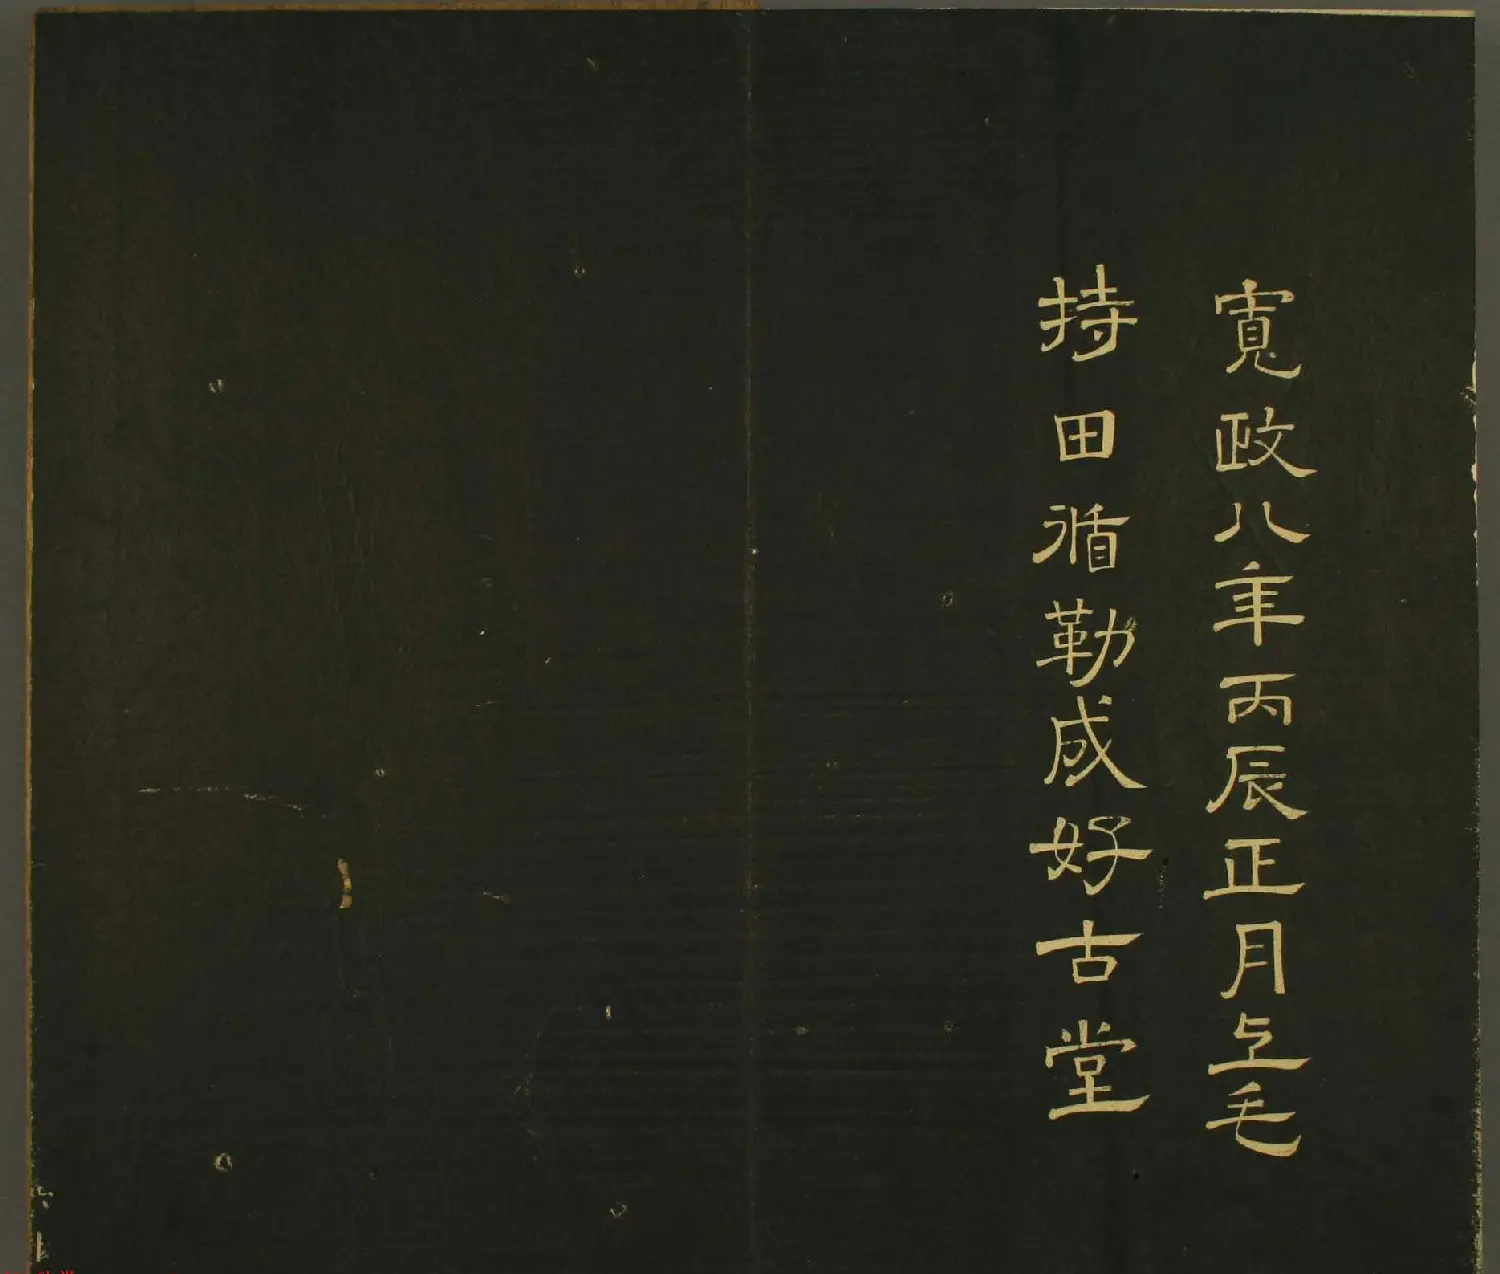 寬政八年丙辰正月上毛
持田循勒成好古堂